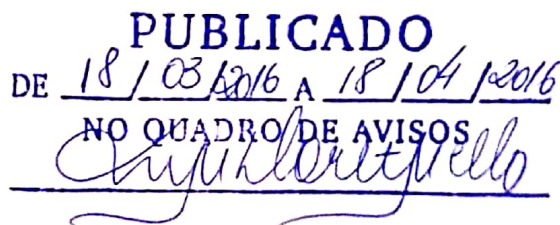 PUBLICADO
DE 18 / 03 / 2016 A 18 / 04 / 2016
NO QUADRO DE AVISOS